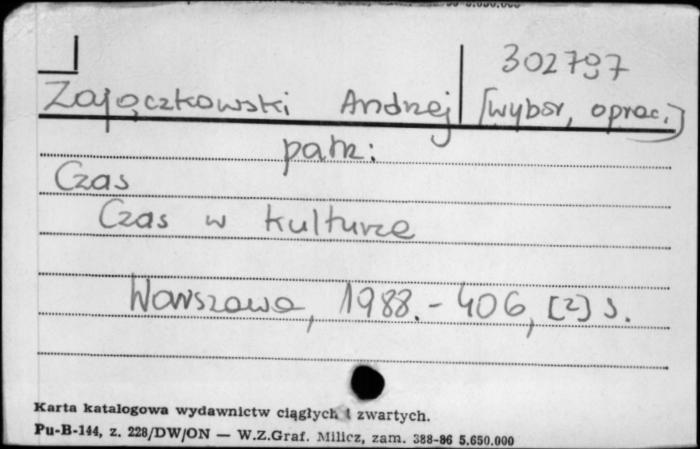 302797
Zajączkowski Andrzej [wybór, oprac.]
patrz:
Czas
Czas w kulturze
Warszawa, 1988.- 406, [2] s.
Karta katalogowa wydawnictw ciągłych i zwartych.
Pu-B-144, z. 228/DW/ON — W.Z.Graf. Milicz, zam. 388-86 5.650.000